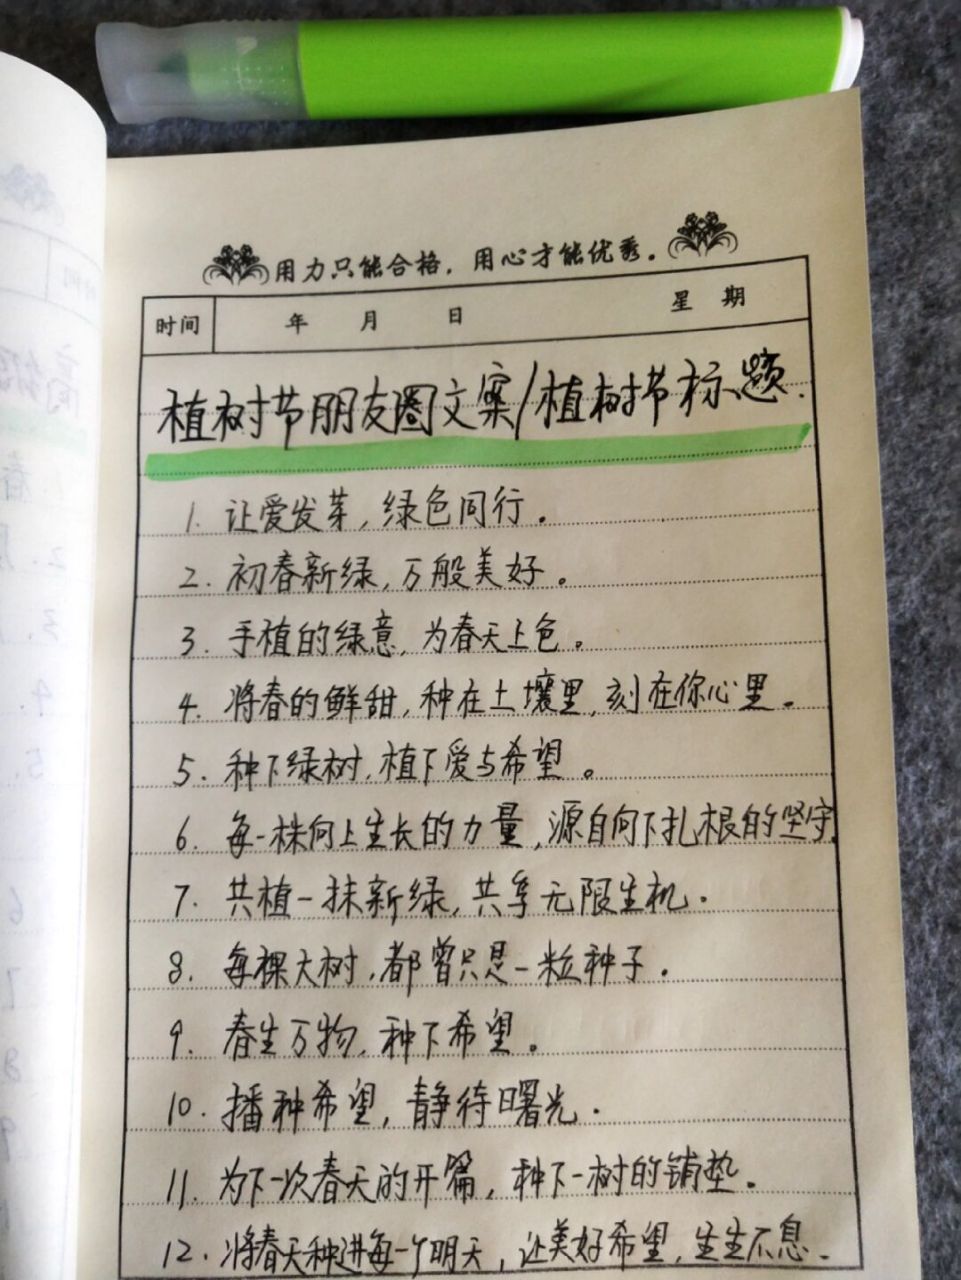 用力只能合格，用心才能优秀。
时间 年 月 日 星 期
植树节朋友圈文案/植树节标题.
1. 让爱发芽,绿色同行。
2. 初春新绿,万般美好。
3. 手植的绿意,为春天上色。
4. 将春的鲜甜,种在土壤里,刻在你心里。
5. 种下绿树,植下爱与希望。
6. 每一株向上生长的力量,源自向下扎根的坚守.
7. 共植一抹新绿,共享无限生机.
8. 每棵大树,都曾只是一粒种子.
9. 春生万物,种下希望。
10. 播种希望,静待曙光.
11. 为下一次春天的开篇,种下一树的铺垫。
12. 将春天种进每一个明天,让美好希望,生生不息.